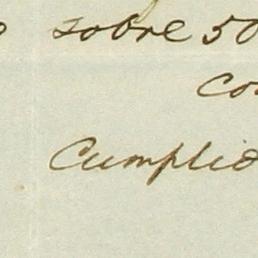 sobre 50
co
Cumplid